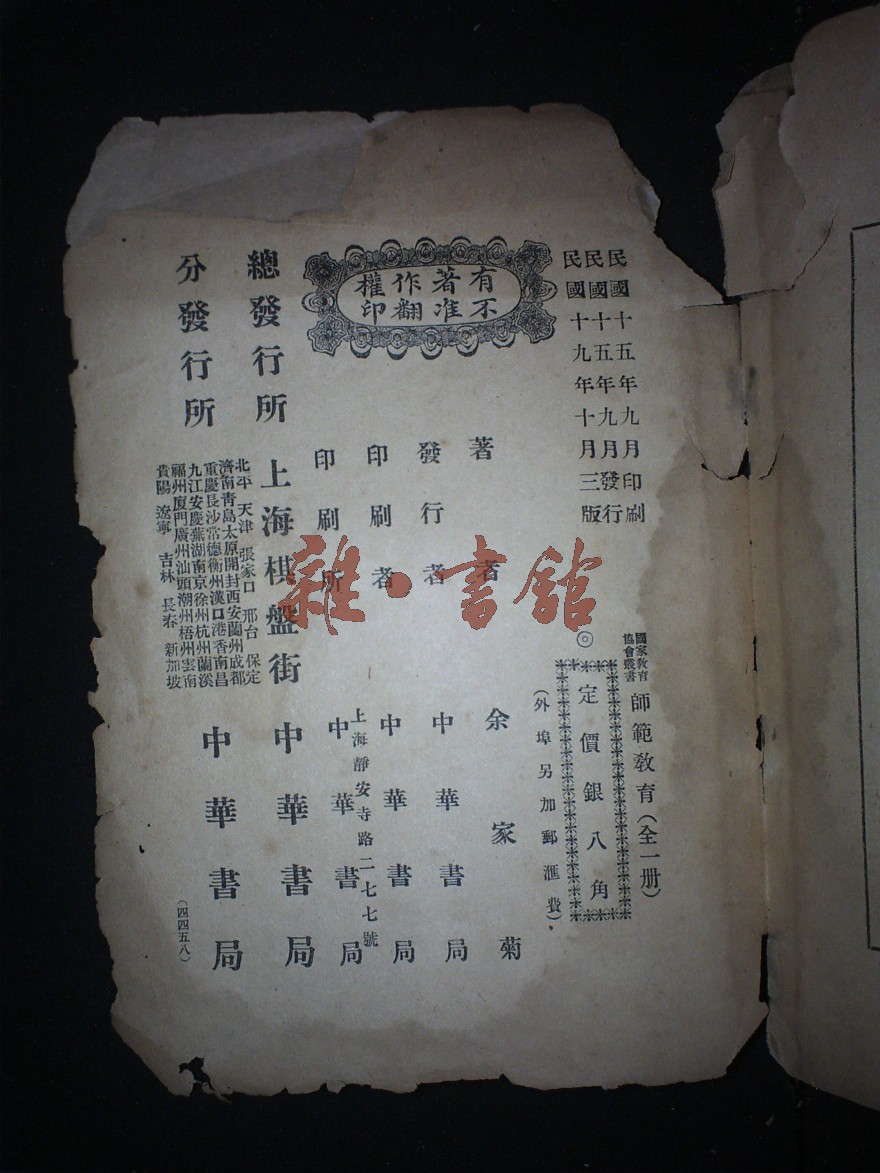 民國十五年九月印刷
民國十五年九月發行
民國十九年十月三版
國家教育
協會叢書
師範敎育(全一册)
◎
定價銀八角
(外埠另加郵滙費)
有著作權
不准翻印
著者 余家菊
發行者 中華書局
印刷者 中華書局
上海靜安寺路二七七號
印刷所 中華書局
總發行所 上海棋盤街 中華書局
分發行所 中華書局
北平 天津 張家口 邢台 保定
濟南青島太原開封西安蘭州成都
重慶長沙常德衡州漢口港香南昌
九江安慶蕪湖南京徐州杭州蘭溪
福州廈門廣州汕頭潮州梧州雲南
貴陽 遼寧 吉林 長春 新加坡
(四四五八)
雜·書館